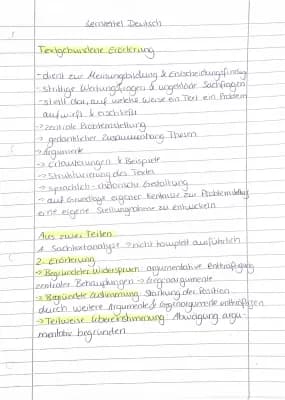 Lernzettel Deutsch
Textgebundene Erörterung
- dient zur Meinungsbildung & Entscheidungsfindung
- strittige Wertungsfragen & ungeklärte Sachfragen
- stellt dar, auf welche Weise ein Text ein Problem
aufwirft & erschließt
-> zentrale Problemstellung
-> gedanklicher Zusammenhang Thesen
-> Argumente
-> Erläuterungen & Beispiele
-> Strukturierung des Textes
-> sprachlich-rhetorische Gestaltung
-> auf Grundlage eigener Kenntnisse zur Problemstellung
eine eigene Stellungnahme zu entwickeln
Aus zwei Teilen
1. Sachtextanalyse -> nicht komplett ausführlich
2. Erörterung
-> Begründeter Widerspruch: argumentative Entkräftigung
zentraler Behauptungen -> Gegenargumente
-> Begründete Zustimmung: Stärkung der Position
durch weitere Argumente & Gegenargumente entkräftigen
-> Teilweise Übereinstimmung: Abwägung argu-
mentativ begründen